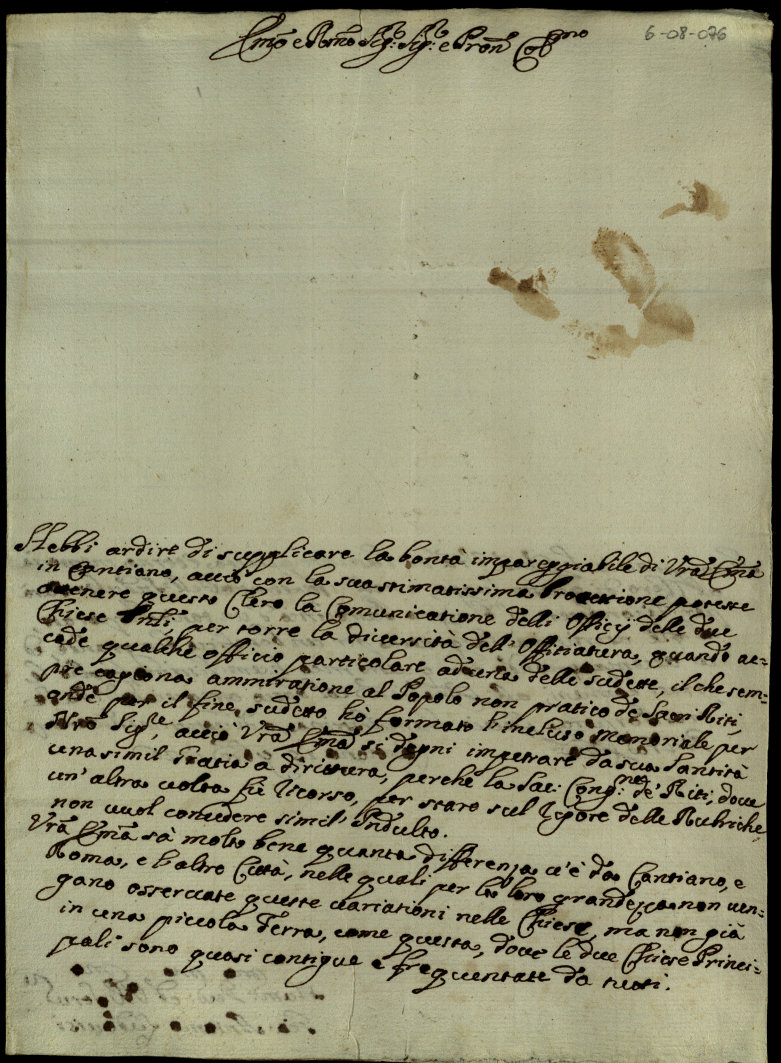 6-08-076
Emo e Rmo Sig:r Sig:r e Pron Col:mo
Hebbi ardire di supplicare la bontà impareggiabile di Vrã Emã
in Cantiano, acciò con la sua stimatissima Protettione potesse
ottenere questo Clero la Comunicatione delli Officij delle due
Chiese Prnli, per torre la diversità dell'Offitiatura, quando ac=
cade qualche officio particolare ad una delle sudette, il che sem=
pre cagiona ammiratione al Popolo non pratico de Sacri Riti,
onde per il fine sudetto hò formato l'incluso memoriale per
Nrõ Sig:re, acciò Vrã Emã si degni impetrare da sua Santità
una simil Gratia a dirittura, perche la Sac: Cong:ne de' Riti, dove
un'altra volta fù ricorso, per stare sul rigore delle Rubriche,
non vuol concedere simil Indulto.
Vrã Emã sà molto bene quanta differenza v'è da Cantiano, e
Roma, e l'altre Città, nelle quali per la loro grandezza non ven=
gano osservate queste variationi nelle Chiese, ma non già
in una piccola Terra, come questa, dove le due Chiese Princi=
pali sono quasi contigue e frequentate da tutti.